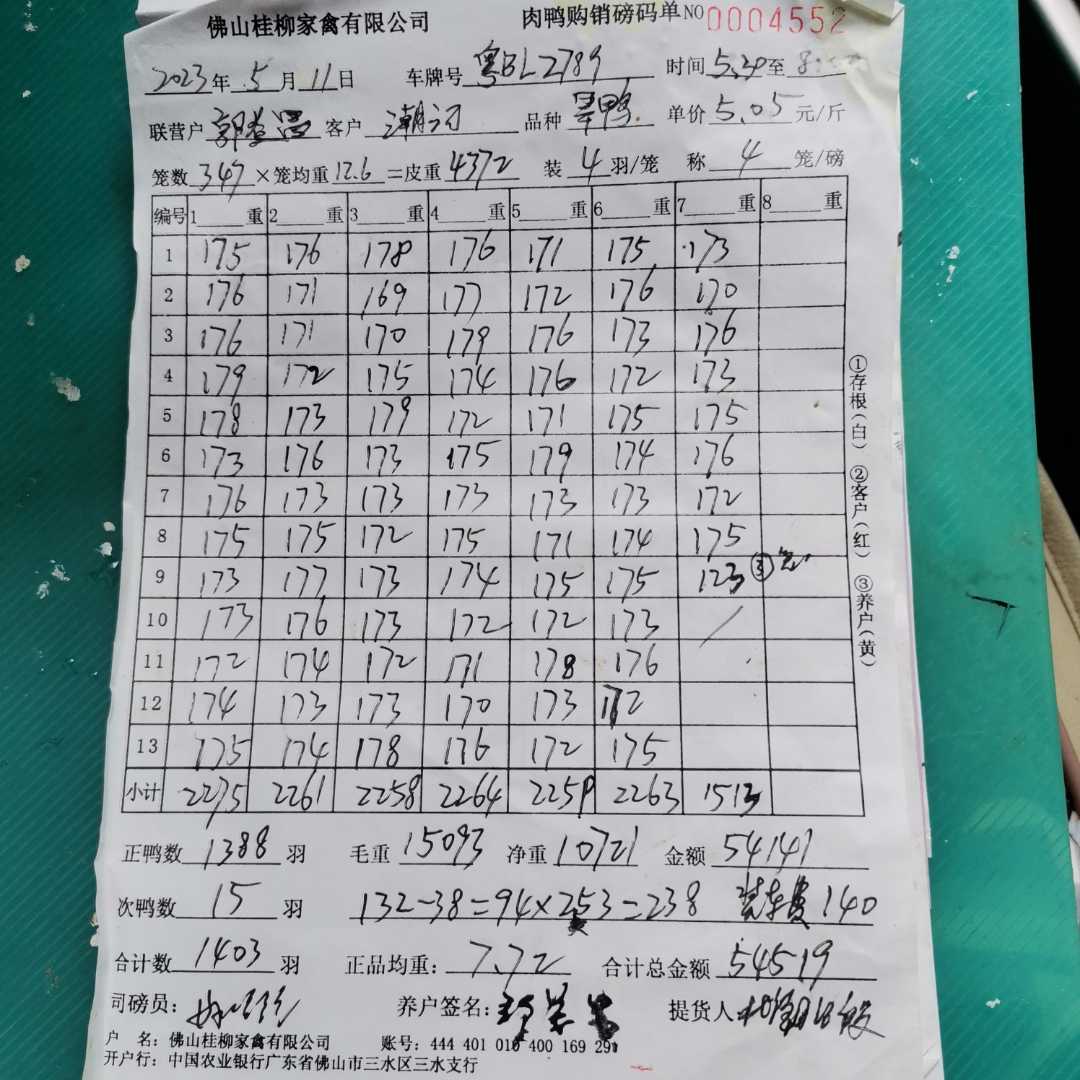 佛山桂柳家禽有限公司 肉鸭购销磅码单 NO 0004552
2023年 5月 11日 车牌号 粤BL2789 时间 5.20至 8:
联营户 郭 客户 潮河 品种 鸭 单价 5.05 元/斤
笼数 347 ×笼均重 12.6 =皮重 4372 装 4 羽/笼 称 4 笼/磅
编号 1 重 2 重 3 重 4 重 5 重 6 重 7 重 8 重
1 175 176 178 176 171 175 173
2 176 171 169 177 172 176 170
3 176 171 170 179 176 173 176
4 179 172 175 174 176 172 173
5 178 173 179 172 171 175 175
6 173 176 173 175 179 174 176
7 176 173 173 173 173 173 172
8 175 175 172 175 171 174 175
9 173 177 173 174 175 175 123 ③笼
10 173 176 173 172 172 173 /
11 172 174 172 171 178 176
12 174 173 173 170 173 172
13 175 174 178 176 172 175
小计 2275 2261 2258 2264 2259 2263 1513
正鸭数 1388 羽 毛重 15093 净重 10721 金额 54141
次鸭数 15 羽 132-38=94×253=238 装车费 140
合计数 1403 羽 正品均重: 7.72 合计总金额 54519
司磅员: 养户签名: 提货人
户 名: 佛山桂柳家禽有限公司 账号: 444 401 010 400 169 291
开户行: 中国农业银行广东省佛山市三水区三水支行
①存根(白) ②客户(红) ③养户(黄)